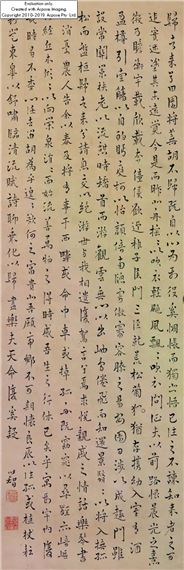 Evaluation only.
Created with Aspose.Imaging.
Copyright 2010-2019 Aspose Pty Ltd.
歸去來兮田園將蕪胡不歸既自以心為形役奚惆悵而獨悲悟已往之不諫知來者之可
追寔迷途其未遠覺今是而昨非舟遙遙以輕颺風飄飄而吹衣問征夫以前路恨晨光之熹
微乃瞻衡宇載欣載奔僮僕歡迎稚子候門三徑就荒松菊猶存攜幼入室有酒
盈樽引壺觴以自酌眄庭柯以怡顏倚南牕以寄傲審容膝之易安園日涉以成趣門雖
設而常關策扶老以流憩時矯首而遐觀雲無心以出岫鳥倦飛而知還景翳翳以將入撫孤
松而盤桓歸去來兮請息交以絕游世與我而相遺復駕言兮焉求悅親戚之情話樂琴書以
消憂農人告余以春及將有事于西疇或命巾車或棹孤舟既窈窕以尋壑亦崎嶇而
經丘木欣欣以向榮泉涓涓而始流善萬物之得時感吾生之行休已矣乎寓形宇內復
幾時曷不委心任去留胡為遑遑欲何之富貴非吾願帝鄉不可期懷良辰以孤往或植杖而
耘耔登東皋以舒嘯臨清流而賦詩聊乘化以歸盡樂夫天命復奚疑